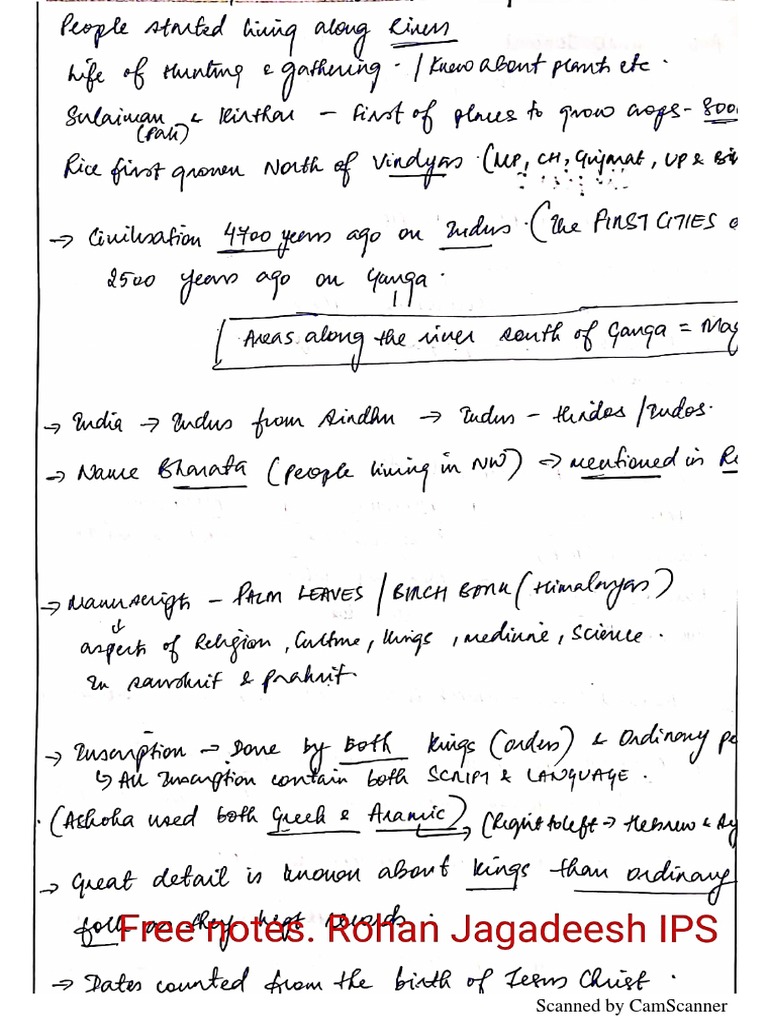 People started living along Rivers
Life of Hunting & gathering. / Knew about plants etc.
Sulaiman & Kirthar - First of places to grow crops - 800
(Pak)
Rice first grown North of Vindyas (MP, CH, Gujarat, UP & Bi
→ Civilisation 4700 years ago on Indus. (The FIRST CITIES
2500 years ago on Ganga.
Areas along the river south of Ganga = Mag
→ India → Indus from Sindhu → Indus - Hindos / Indos.
→ Name Bharata (people living in NW) → mentioned in R
→ Manuscript - PALM LEAVES / BIRCH BORK (Himalayas)
↓
aspects of Religion, Culture, kings, medicine, science.
In sanskrit & prakrit.
→ Inscription → Done by Both kings (orders) & Ordinary pe
↳ All Inscription contain both SCRIPT & LANGUAGE.
. (Ashoka used both Greek & Aramic) → (Right to left → Hebrew &
→ Great detail is known about kings than ordinary
folk as they kept records.
Free notes. Rohan Jagadeesh IPS
→ Dates counted from the birth of Jesus Christ.
Scanned by CamScanner